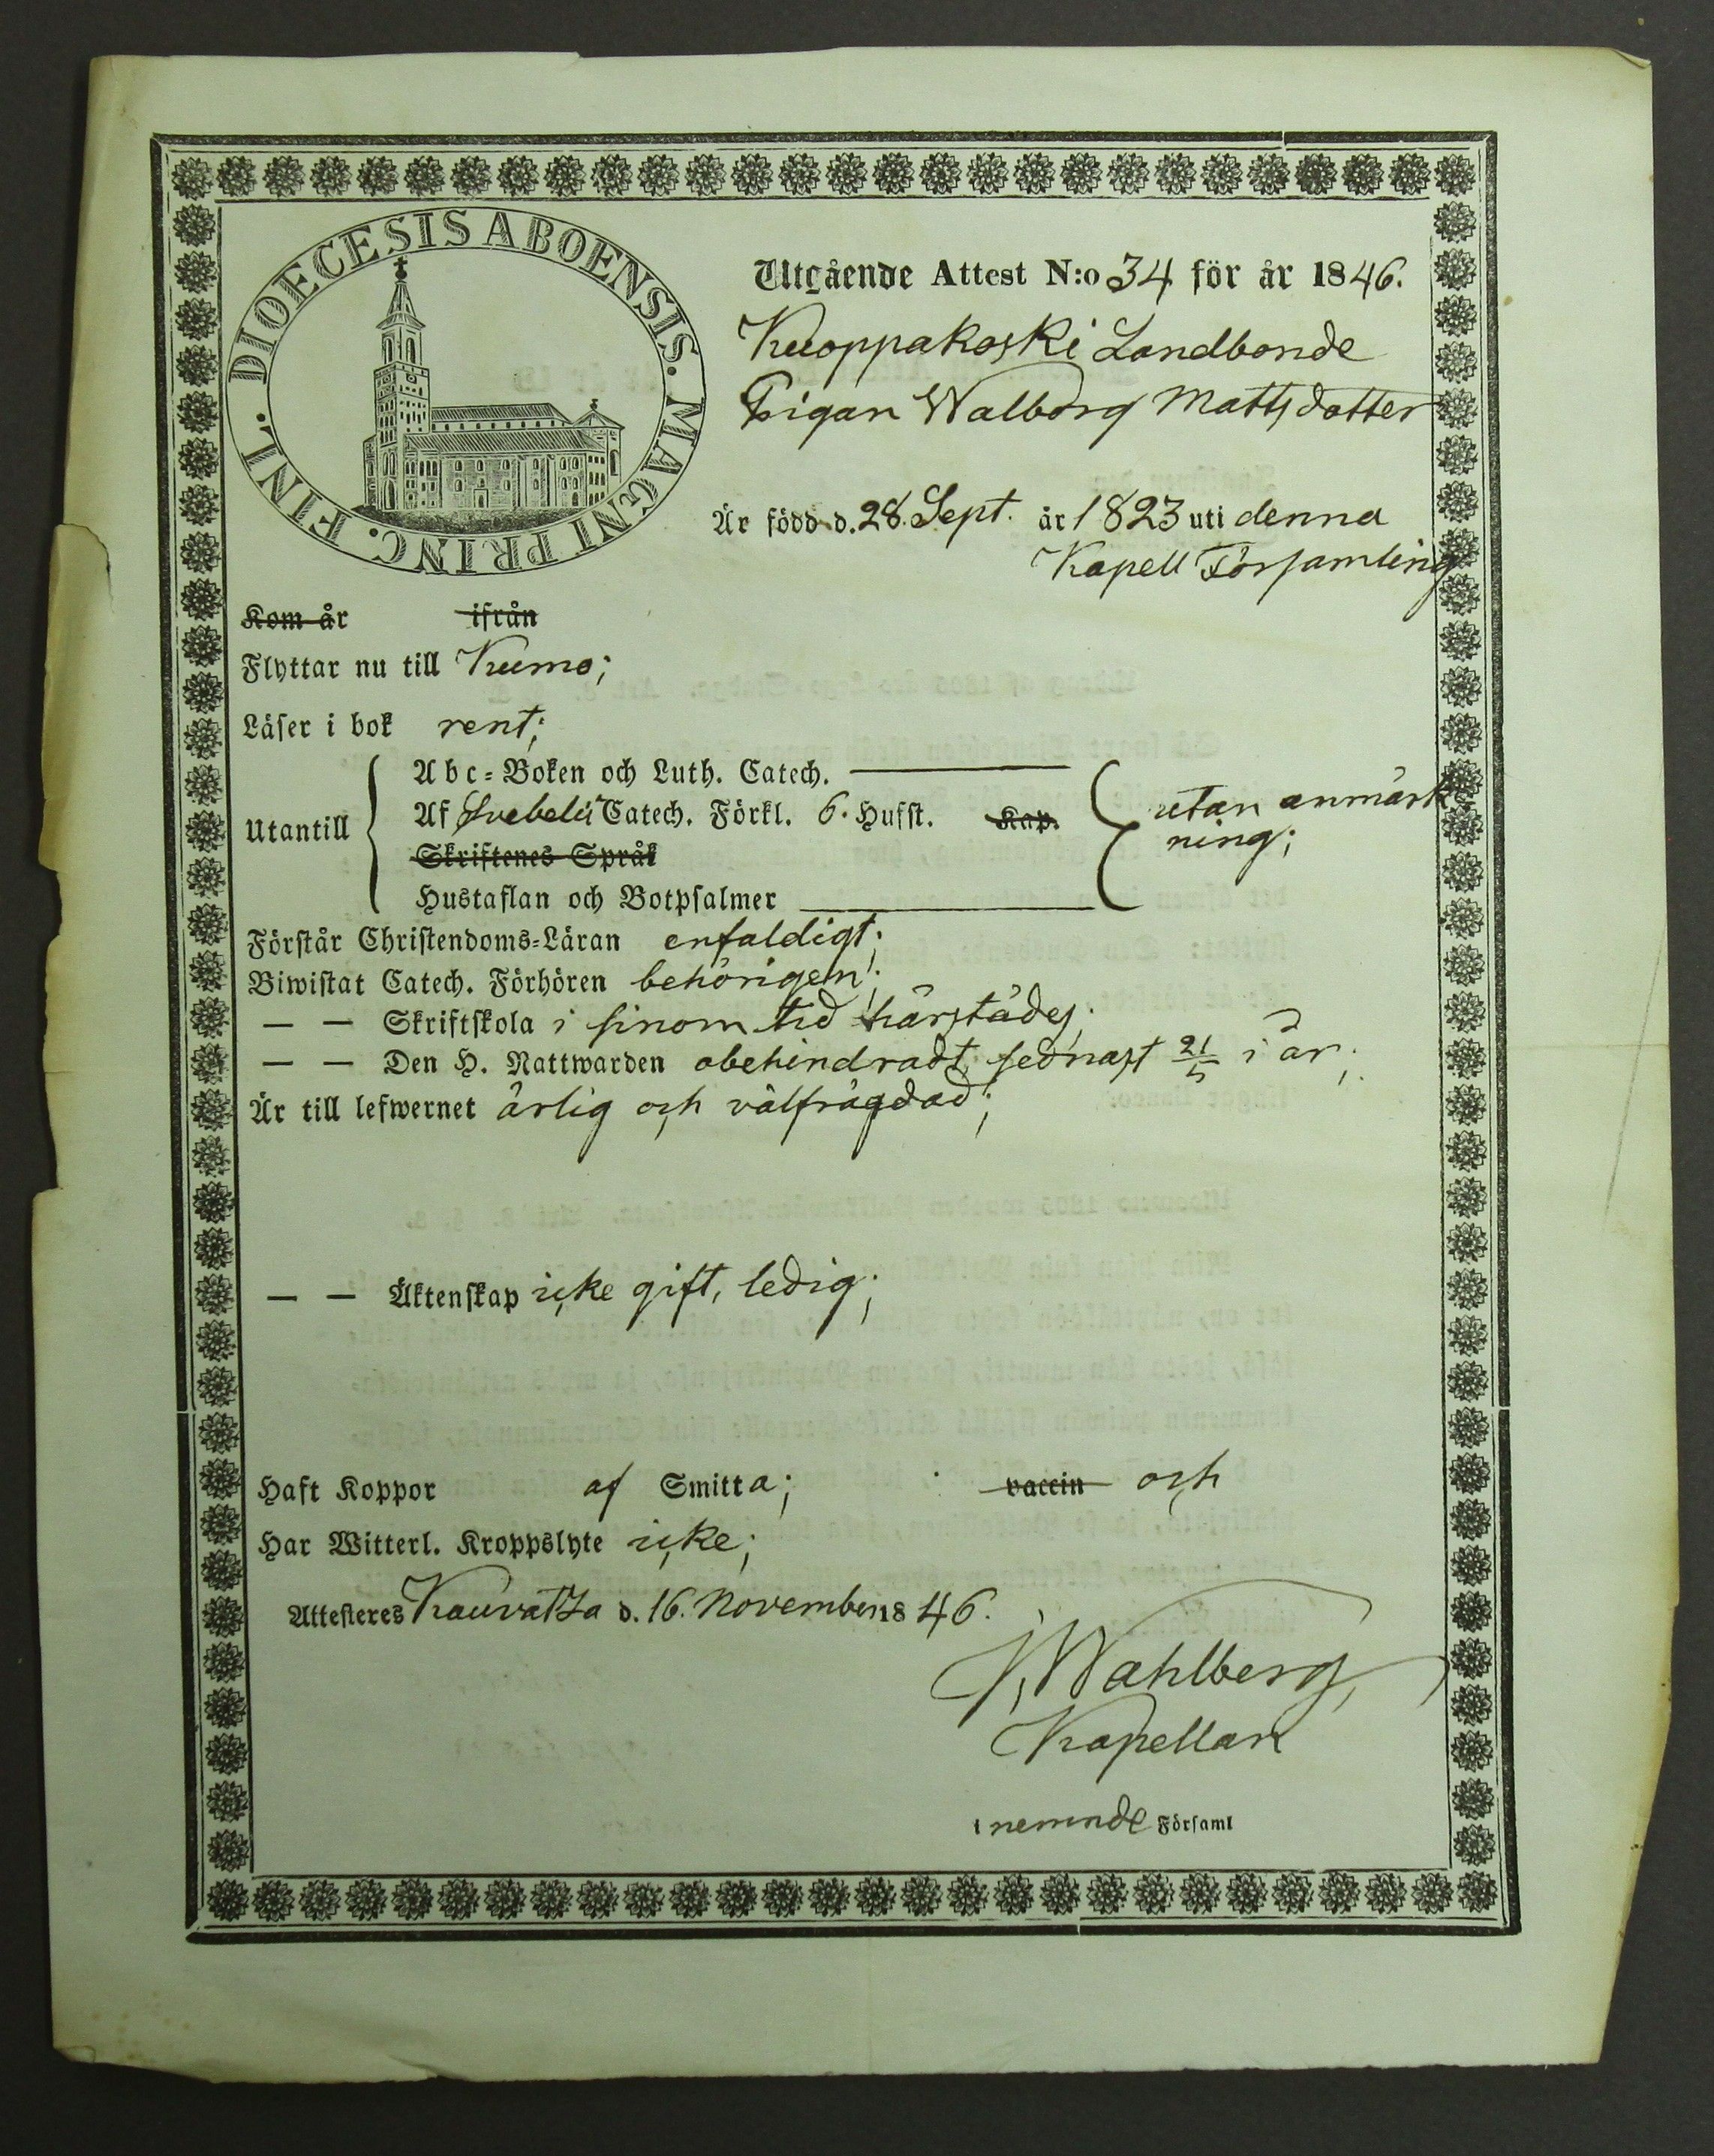 DIOECESIS ABOENSIS. MAGNI PRINC. FINL.
Utgående Attest N:o 34 för år 1846.
Kuoppakoski Landbonde
Pigan Walborg Mattsdotter
Är född d. 28. Sept. år 1823 uti denna
Kapell Församling
Kom år ifrån
Flyttar nu till Kumo;
Läser i bok rent;
Utantill
Abc-Boken och Luth. Catech.
Af Svebelii Catech. Förkl. 6. Hufst. Kap.
Skriftenes Språk
Hustaflan och Botpsalmer
utan anmärk
ning;
Förstår Christendoms-Läran enfaldigt;
Biwistat Catech. Förhören behörigen;
— — Skriftskola i sinom tid härstädes;
— — Den H. Nattwarden obehindradt, sednast 21/5 i år;
Är till lefwernet ärlig och välfrägdad;
— — Äktenskap icke gift, ledig;
Haft Koppor af Smitta; vaccin och
Har Witterl. Kroppslyte icke;
Attesteres Kauvatza d. 16. November 1846.
J. Wahlberg,
Kapellan
i nemnde Församl